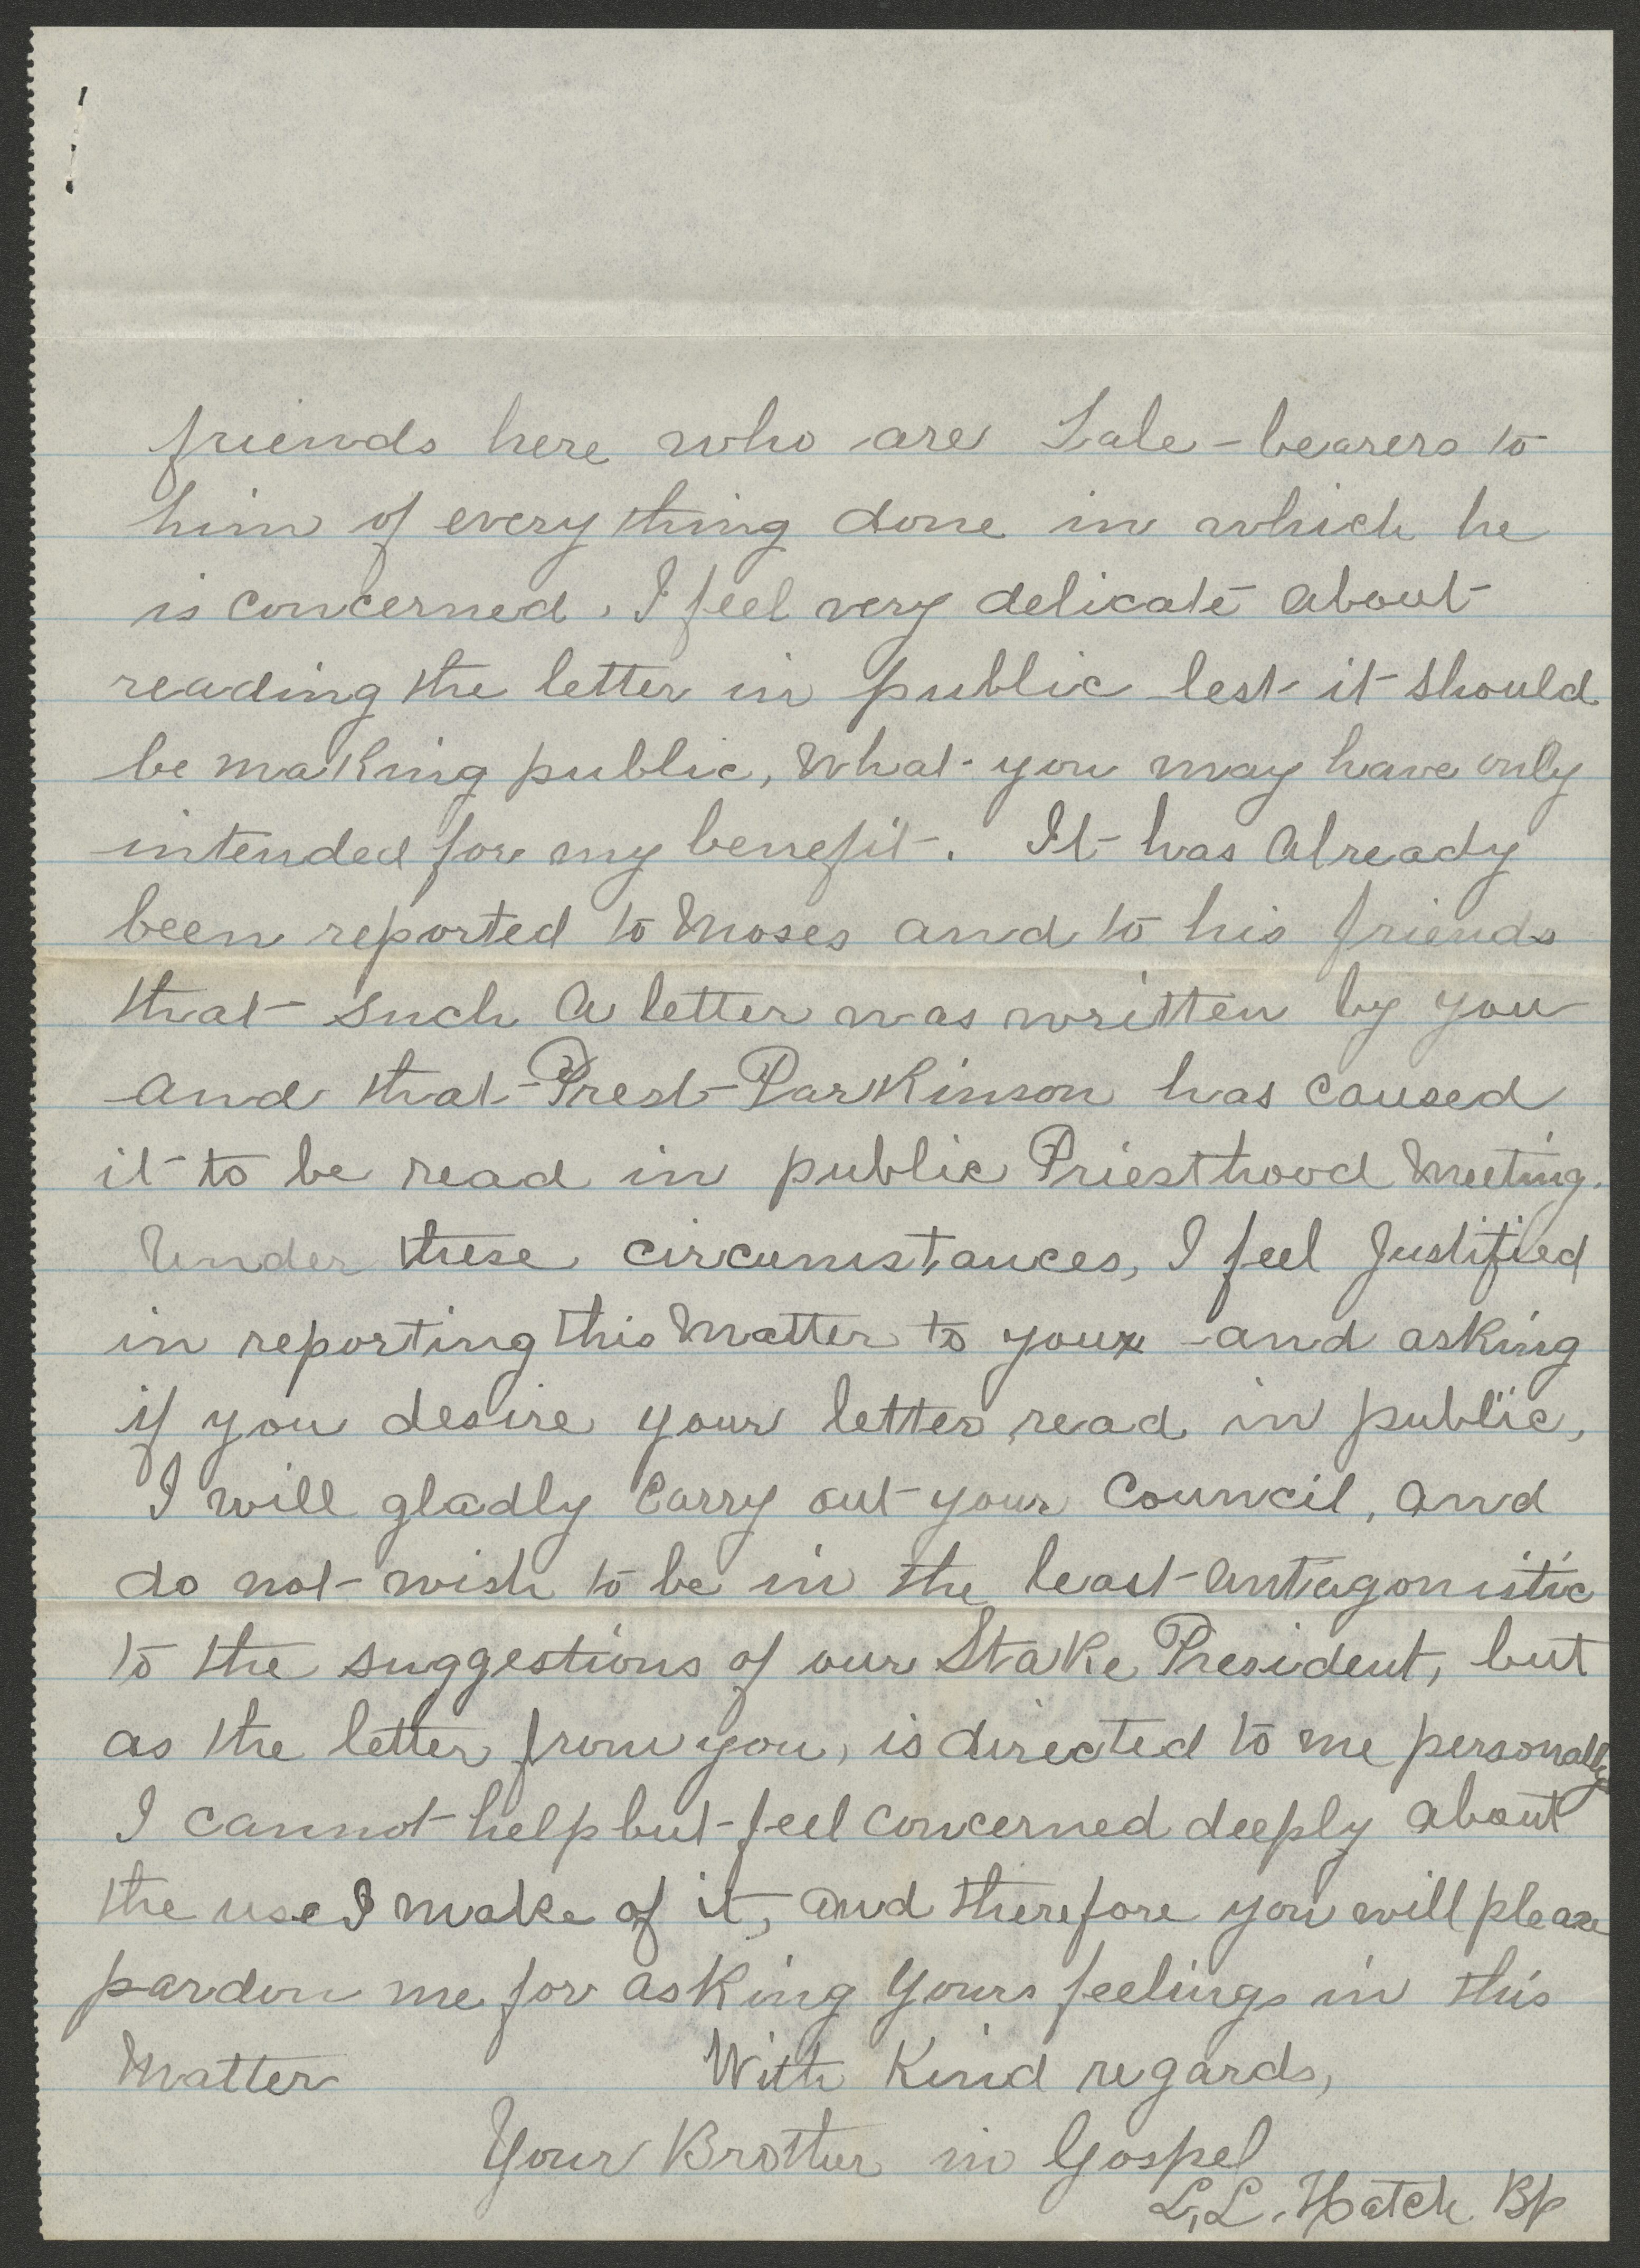 friends here who are Tale-bearers to
him of every thing done in which he
is concerned. I feel very delicate about
reading the letter in public lest it should
be making public, what you may have only
intended for my benefit. It has already
been reported to Moses and to his friends
that such a letter was written by you
and that Prest Parkinson has caused
it to be read in public Priesthood Meeting.
Under these circumstances, I feel Justified
in reporting this Matter to you and asking
if you desire your letter read in public,
I will gladly Carry out your Council, and
do not wish to be in the least antagonistic
to the suggestions of our Stake President, but
as the letter from you, is directed to me personally
I cannot help but feel concerned deeply about
the use I make of it, and therefore you will please
pardon me for asking yours feelings in this
Matter With Kind regards,
Your Brother in Gospel
L. L. Hatch Bp